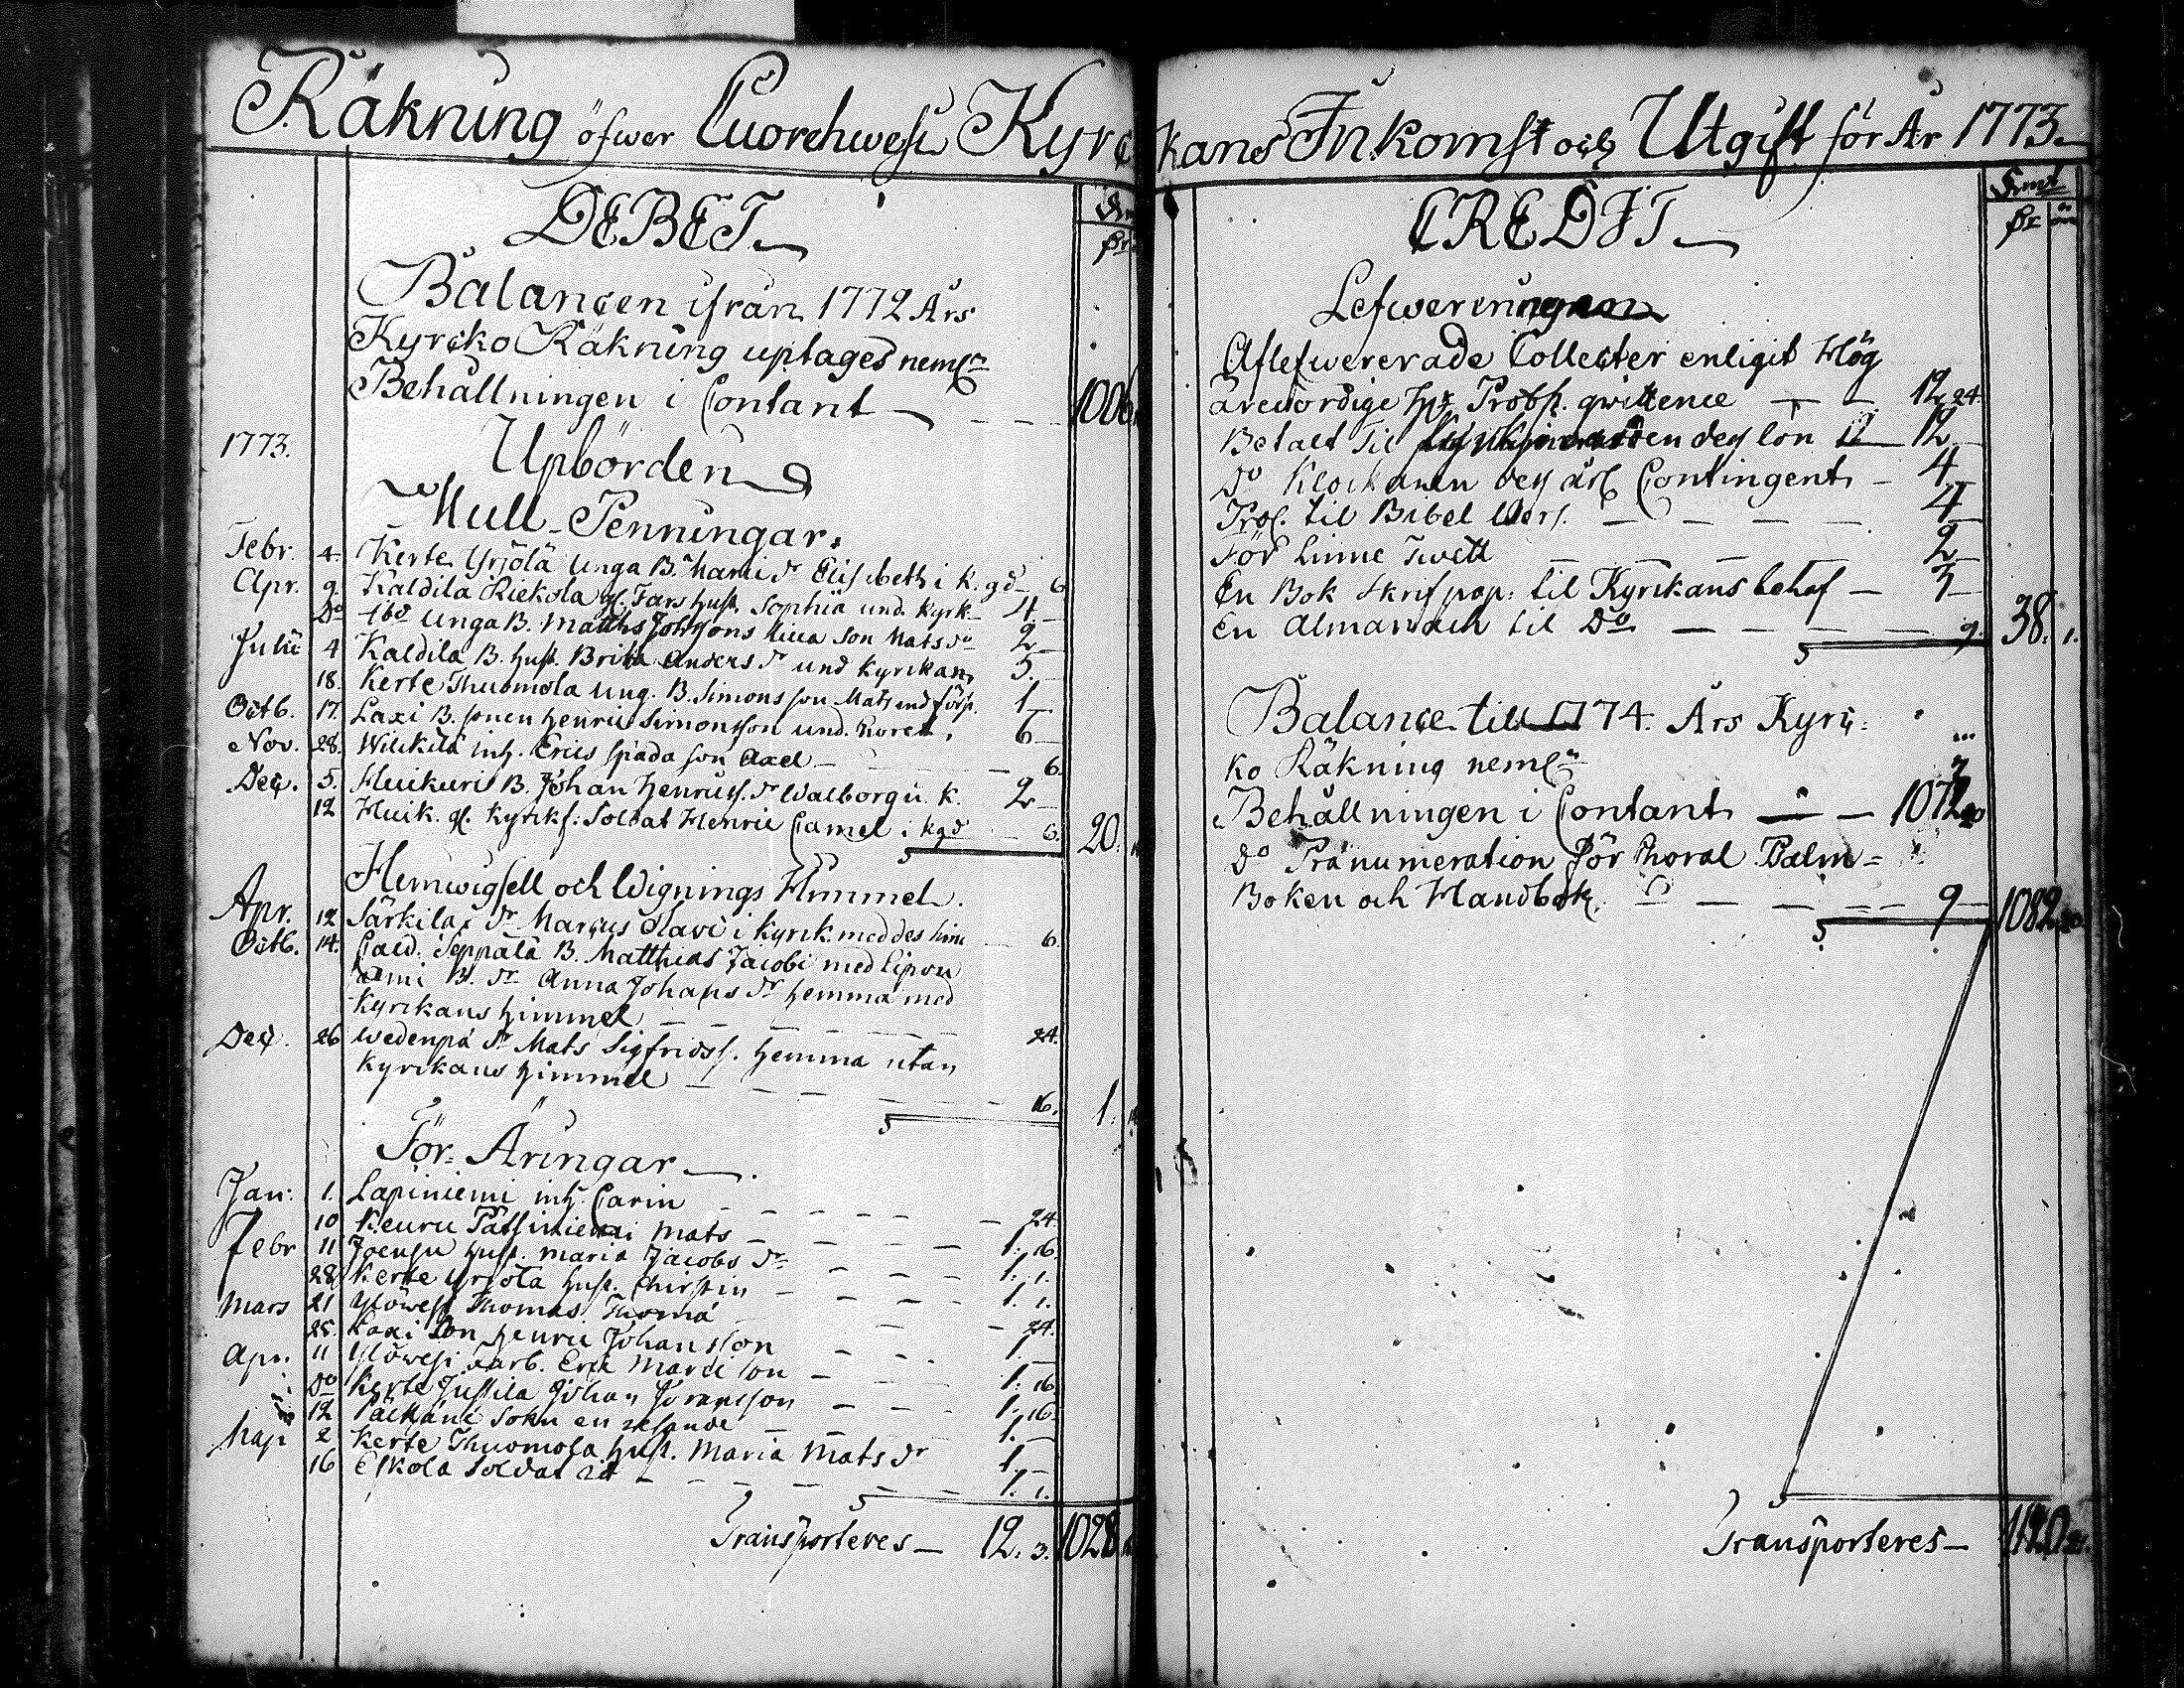 Räkning öfwer Cuorehwesi Kyrc kans Inkomst och Utgift för År 1773.
DEBET
Balancen ifrån 1772 Års
Kyrcko Räkning uptages neml:n
Behållningen i Contant — 1006
1773.
Upbörden
Mull-Penningar.
Febr. 4. Kerte Yrjölä Unga B. Mari dr Elisabeth i K.gd — 6
Apr. 9. Kaldila Riekola gl. Fars hust. Sophia und. kyrk. 4.
Do ibd Unga B. Matths Johssons lilla Son Mats do 2
Julii 4 Kaldila B. hust. Brita Anders dr und kyrckan 3.
18. Kerte Thuomola Ung. B. Simonsson Mats und förp. 1
Octb. 17. Laxi B. sonen Henric Simonsson und. Koret. 6
Nov. 28. Wilckilä inh. Erics Spada son Axel — 6.
Dec. 5. Huikuri B. Johan Henrics. dr Walborg u. K. 2
12 Huik. gl. kyrckf: Soldat Henric Camel i kgd — 6. 20.
Hemwigsell och Wignings Himmel.
Apr. 12 Särkilax dr Marcus Olavi i kyrck. med des him 6.
Octb. 14. Cald. Seppälä B. Matthias Jacobi med Lipon
niemi B. dr Anna Johans dr hemma med
kyrckans himmel — 24.
Dec. 26 Wedenpä dr Mats Sigfridss. hemma utan
kyrckans himmel — 16. 1.
För-Äringar.
Jan: 1. Lapiniemi inh. Carin — 24.
10 Keuru Pätsiniemi Mats — 1. 16.
Febr 11 Joensu hust. Maria Jacobs dr — 1. 1.
28 Kerte Yrjölä hust. Chirstin — 1. 1.
Mars 21 Ylöwesi Thomas Thomæ — 24.
25. Laxi Son Henric Johansson — 1.
Apr. 11 Ylöwesi Erik Son — 1. 16.
Do Kerte Jussila Johan Göransson — 1. 16.
12 Pälkäne Sokn en resande — 1.
Maji 2 Kerte Thuomola hust. Maria Mats dr 1.
16 Eskola Soldat — 1. 1.
Transporteres — 12. 3. 1028
CREDIT
Smt
Dr ör
Lefwereringen
Aflefwererade Collecter enligit Hög
ärewördige H:r Probst. qwittence — 12. 24.
Betalt til den des lön 12
Do Klockaren des årl. Contingent — 4
Prof. til Bibel — 4
För Linne Twett — 2
En Bok skrif pap: til Kyrckans behof — 3
En Almanach til Do — 9. 38. 1.
Balance till 1774. Års Kyrc
ko Räkning neml:n
Behållningen i Contant — 1072 20
Do Pränumeration för Choral Psalm=
Boken och Handbok. — 9 1082. 20
Transporteres — 1120. 21.